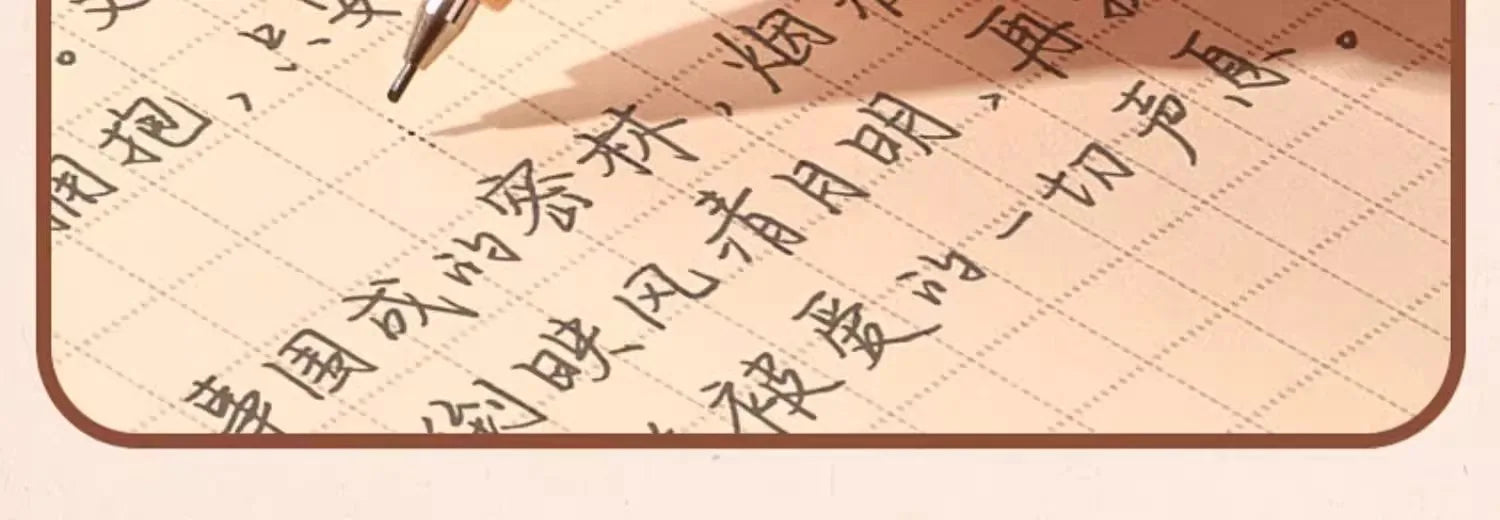 拥抱，只
围成的密林，烟
倒映风清月明，再
被爱的一切声息。